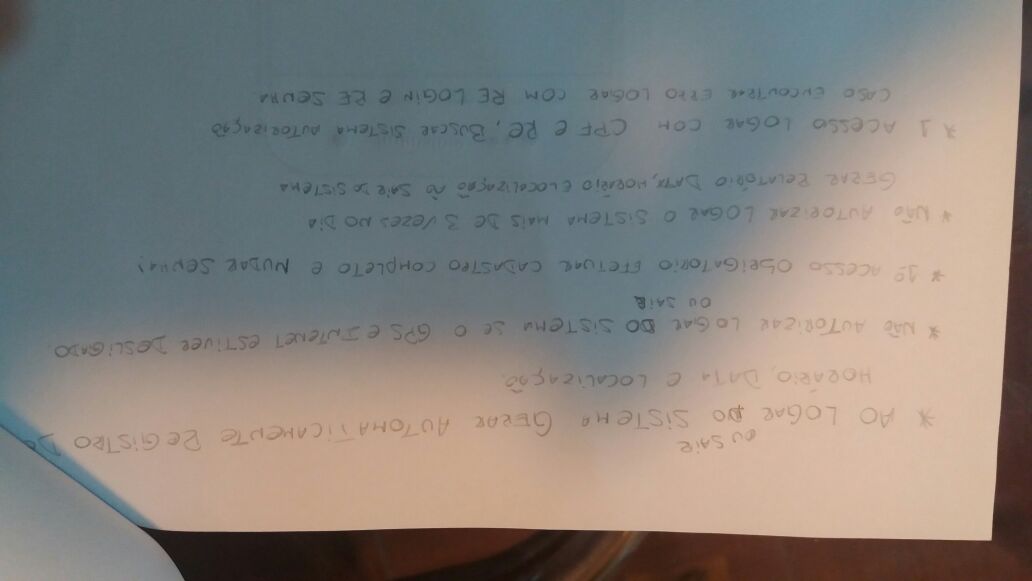 OU SAIR
* AO LOGAR DO SISTEMA GERAR AUTOMATICAMENTE REGISTRO DO
HORÁRIO, DATA E LOCALIZAÇÃO.
* NÃO AUTORIZAR LOGAR DO SISTEMA SE O GPS e INTENET ESTIVER DESLIGADO
OU SAIR
* 1º ACESSO OBRIGATORIO EFETUAR CADASTRO COMPLETO E MUDAR SENHA!
* NÃO AUTORIZAR LOGAR O SISTEMA MAIS DE 3 VEZES NO DIA
GERAR RELATÓRIO DATA, HORÁRIO E LOCALIZAÇÃO AO SAIR DO SISTEMA
* 1 ACESSO LOGAR COM CPF e RE, BUSCAR SISTEMA AUTORIZAÇÃO
CASO ENCONTRAR ERRO LOGAR COM RE LOGIN e RE SENHA